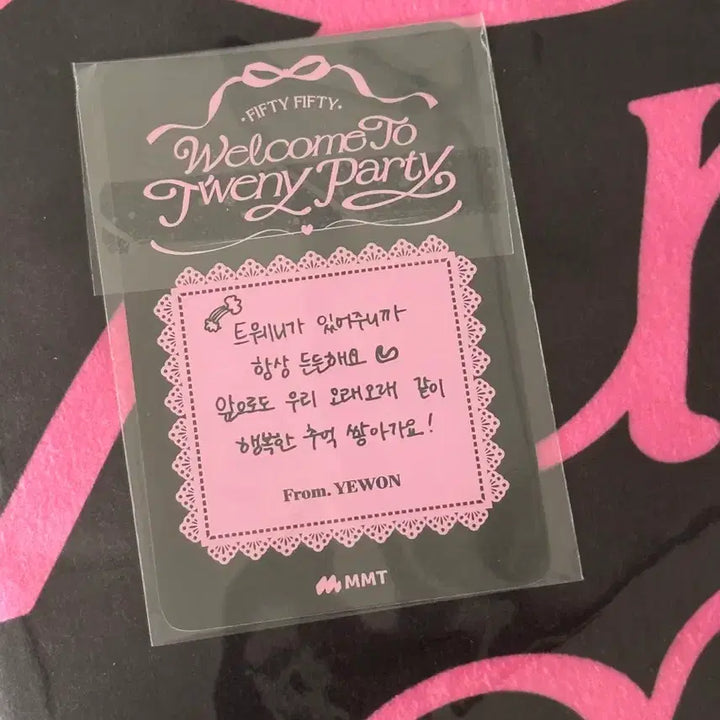 ·FIFTY FIFTY·
Welcome To
Tweny Party
트웨니가 있어주니까
항상 든든해요
앞으로도 우리 오래오래 같이
행복한 추억 쌓아가요!
From. YEWON
MMT